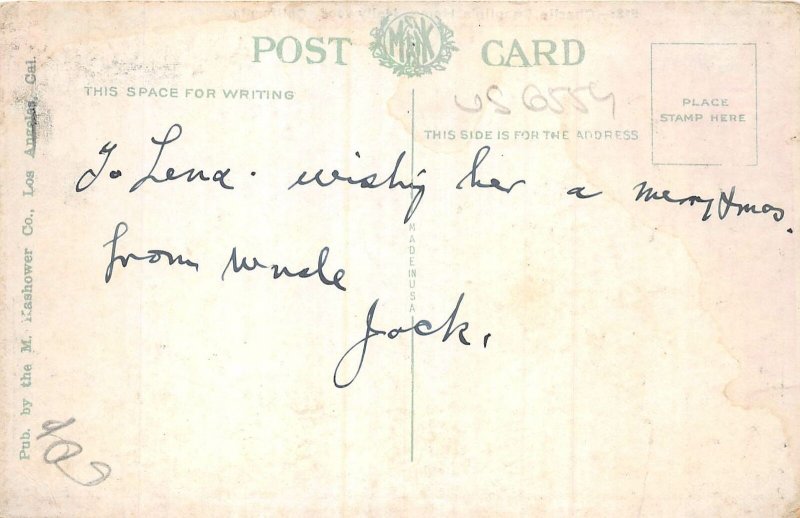 POST CARD
M K
THIS SPACE FOR WRITING
US 6554
PLACE
STAMP HERE
THIS SIDE IS FOR THE ADDRESS
To Lena. wishing her a merry Xmas.
from Uncle
Jack.
MADE IN USA
Pub. by the M. Kashower Co., Los Angeles, Cal.